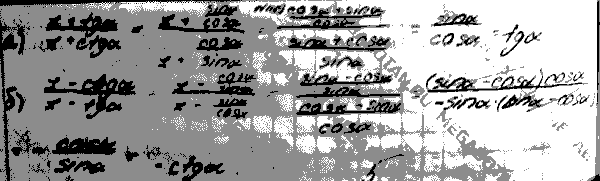 а) (x + tgα)/(x + ctgα) = (x + sinα/cosα)/(x + cosα/sinα) = ((cosα + sinα)/cosα)/((sinα + cosα)/sinα) = sinα/cosα = tgα
б) (x - ctgα)/(x - tgα) = (x - cosα/sinα)/(x - sinα/cosα) = ((sinα - cosα)/sinα)/((cosα - sinα)/cosα) = (sinα - cosα)cosα/(-sinα·(sinα - cosα))
= - cosα/sinα = - ctgα